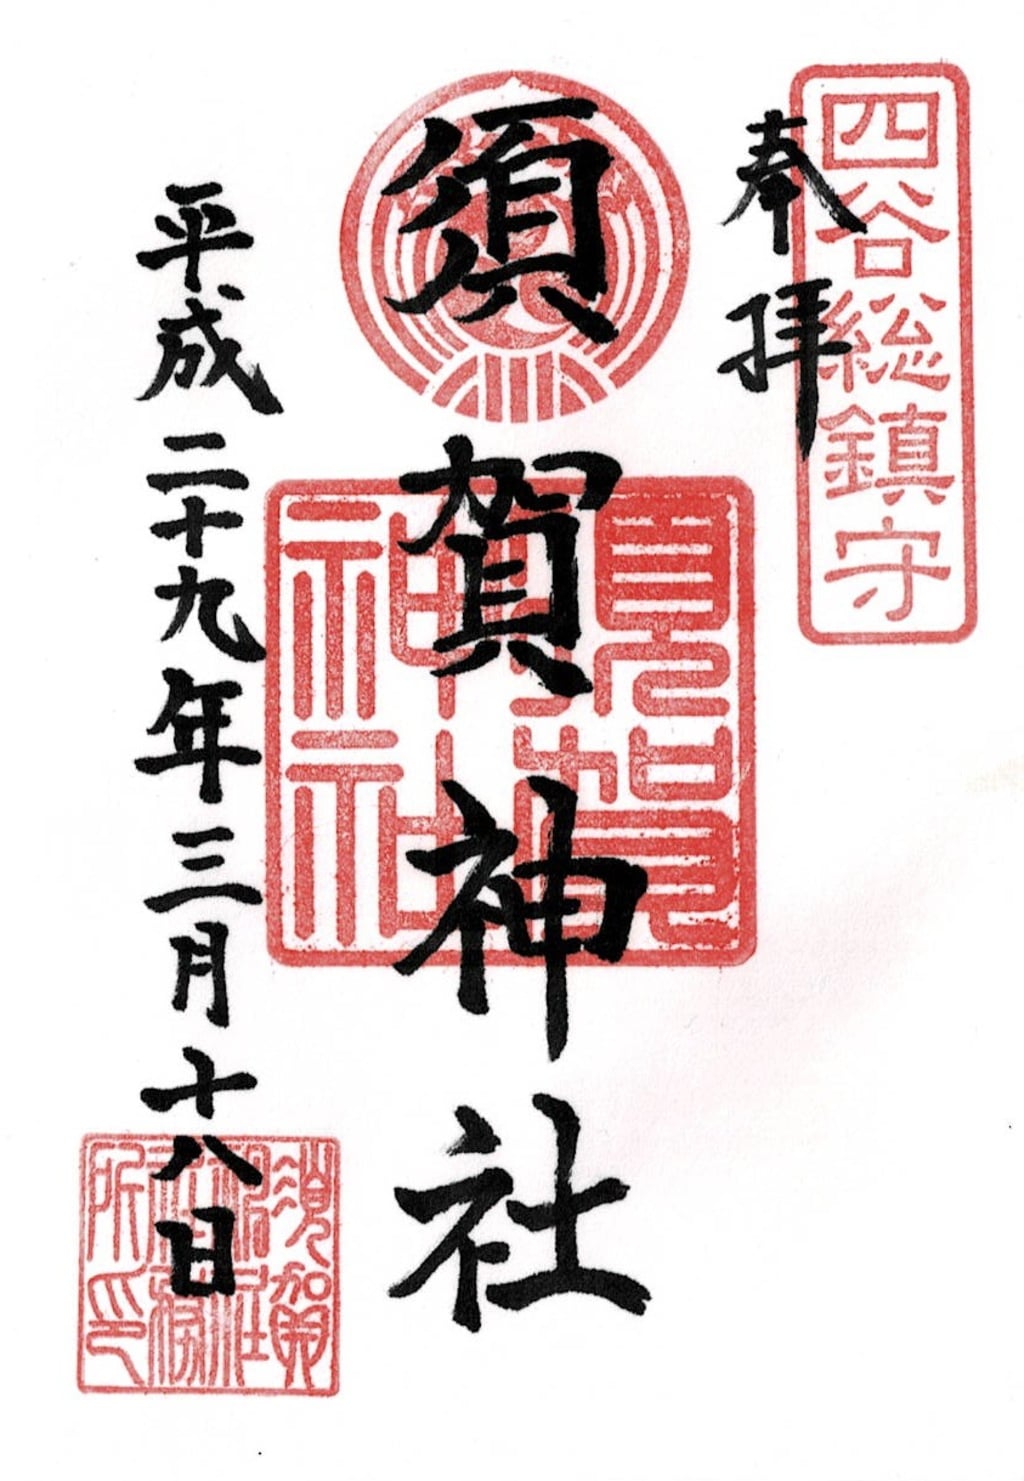 四谷総鎮守
奉拝
須賀神社
須賀神社
平成二十九年三月十八日
須賀神社社務所印